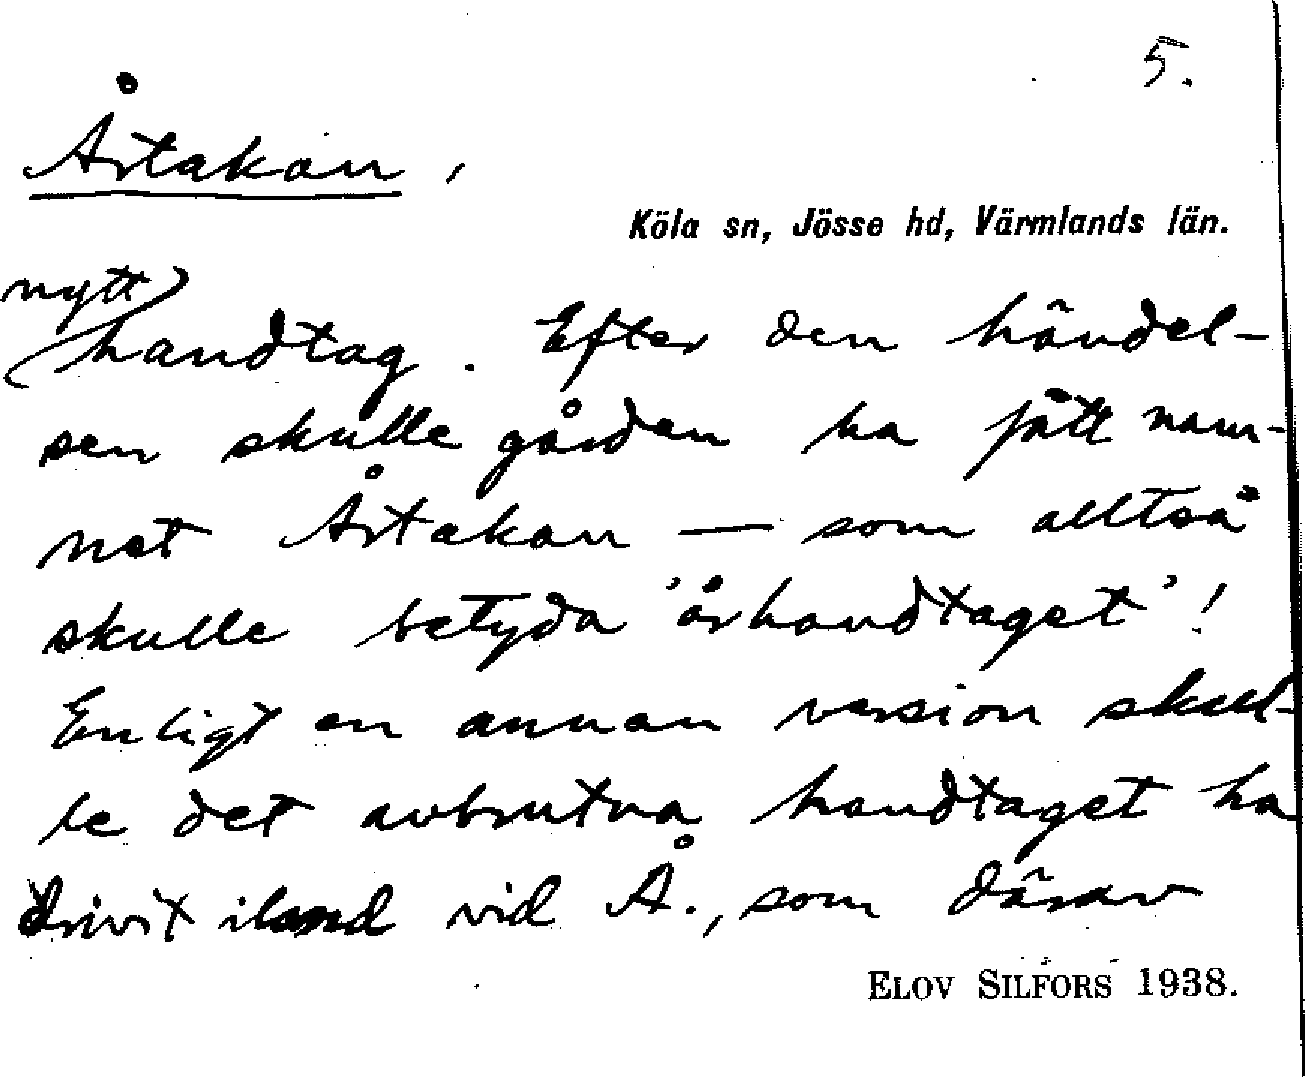 5.
Årtakan,
Köla sn, Jösse hd, Värmlands län.
nytt
handtag. Efter den händel-
sen skulle gården ha fått nam-
net Årtakan — som alltså
skulle betyda 'århandtaget'!
Enligt en annan version skul-
le det avbrutna handtaget ha
drivit iland vid Å., som därav
ELOV SILFORS 1938.